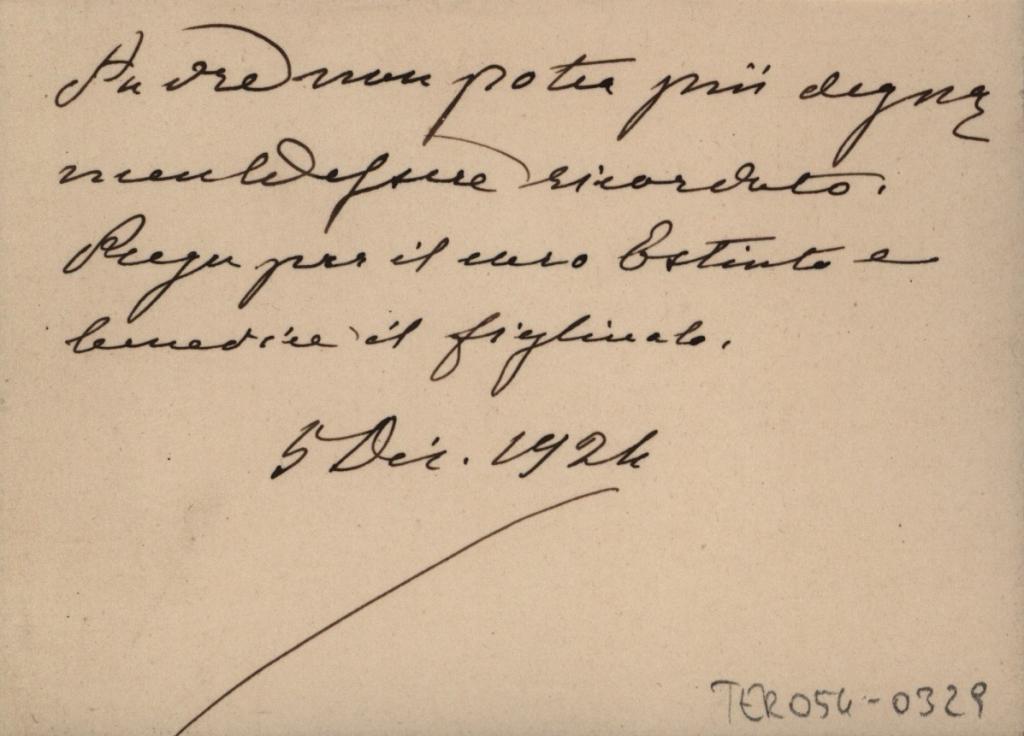 Padre non potea più degna
mente essere ricordato.
Prega per il caro Estinto e
benedire il figliuolo.
5 Dic. 1924
TER054-0329